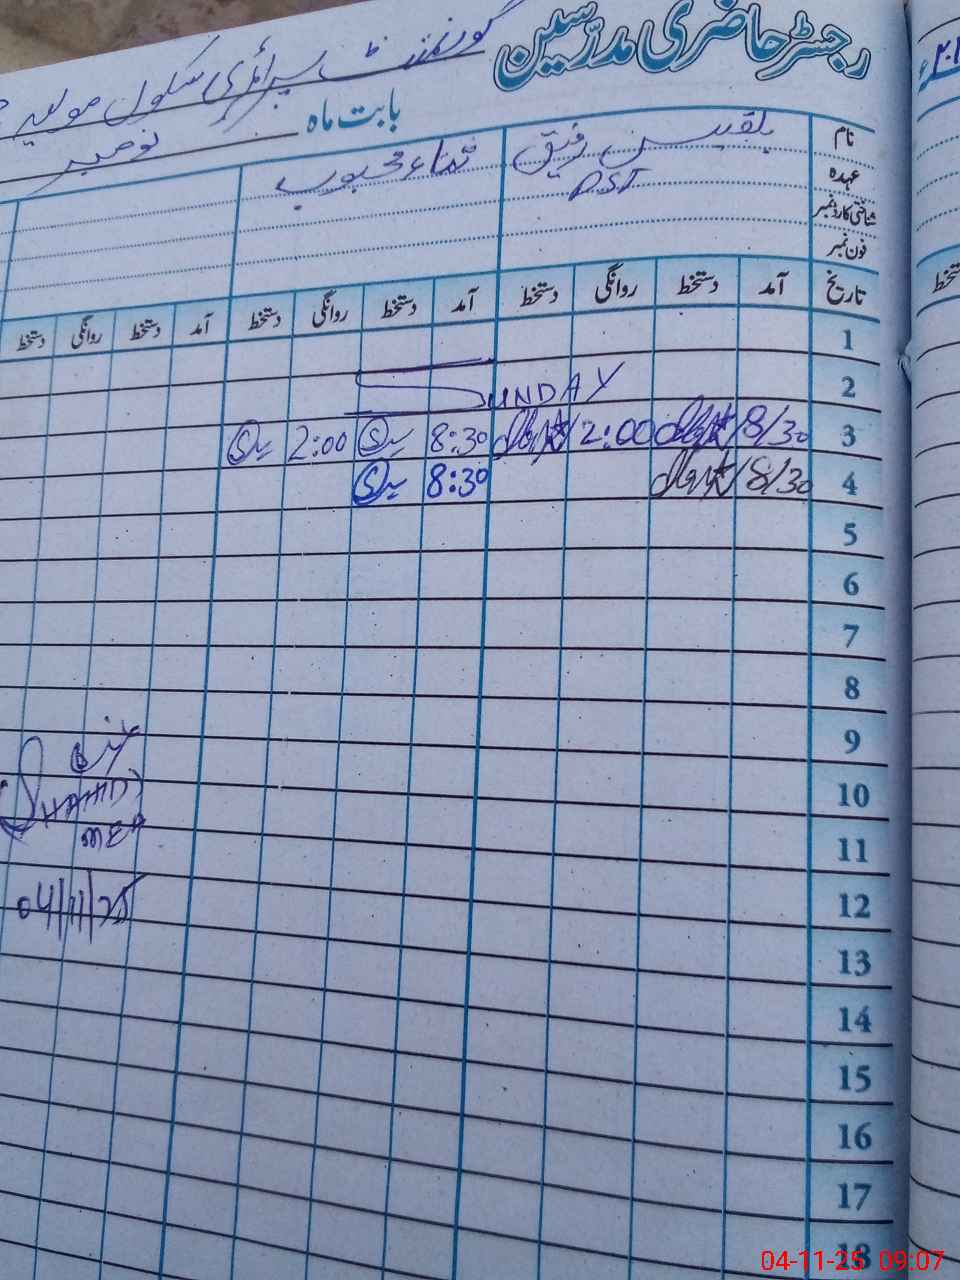 رجسٹر حاضری مدرسین
گورنمنٹ پرائمری سکول
بابت ماہ نومبر
نام بلقیس رفیق ثناء محبوب
عہدہ PST
شناختی کارڈ نمبر
فون نمبر
تاریخ آمد دستخط روانگی دستخط آمد دستخط روانگی دستخط آمد دستخط روانگی دستخط
1
2 SUNDAY
3 8/30 2:00 8:30 2:00
4 8/30 8:30
5
6
7
8
9
10
11
12
13
14
15
16
17
18
SHAHID
MEA
04/11/25
دستخط
04-11-25 09:07